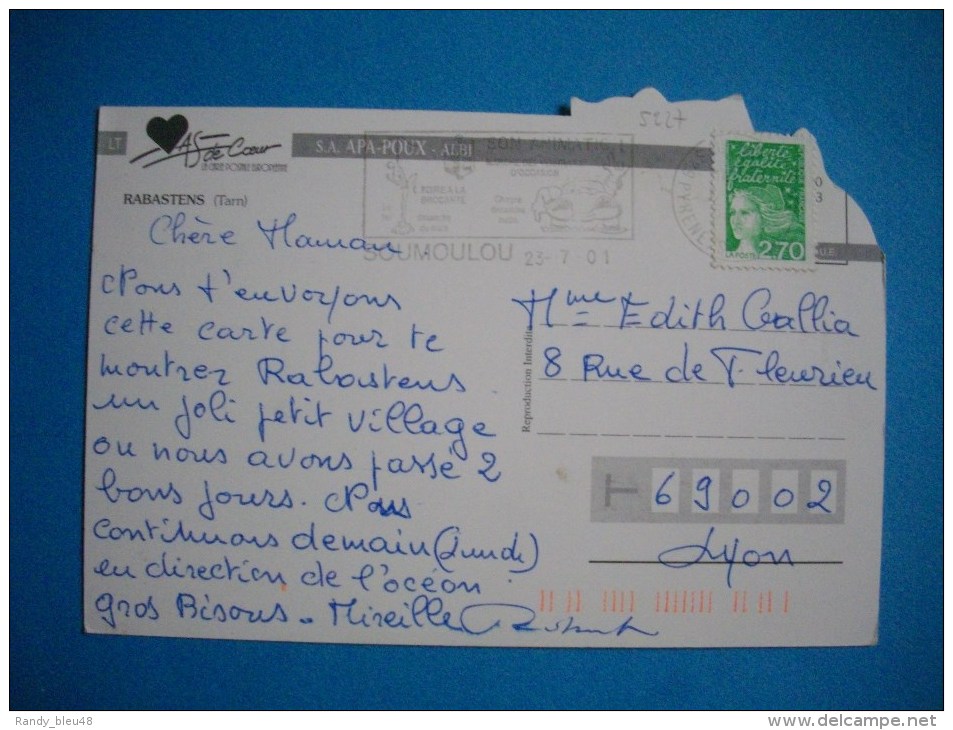 5227
LT
AS de Cœur
LA CARTE POSTALE EUROPEENNE
S.A. APA-POUX - ALBI
RABASTENS (Tarn)
SON ANIMATION
D'OCCASION
FOIRE A LA BROCANTE
SOUMOULOU 23-7 01
liberté
égalité
fraternité
LA POSTE
2,70
Chère Maman
Nous t'envoyons
cette carte pour te
montrer Rabastens
un joli petit village
ou nous avons passé 2
bons jours. Nous
continuons demain (lundi)
en direction de l'océan
gros Bisous. Mireille
Mme Edith Gallia
8 Rue de Fleurieu
Reproduction Interdite
69002
Lyon
Randy_bleu48
http://www.delcampe.net